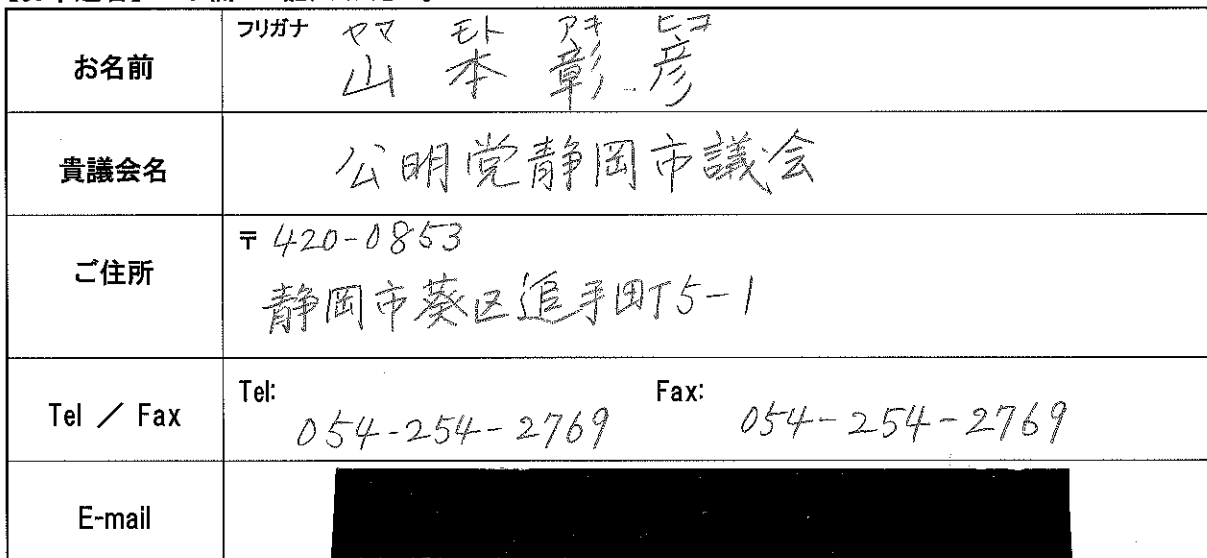 お名前
フリガナ ヤマ モト アキ ヒコ
山本彰彦
貴議会名
公明党静岡市議会
ご住所
〒420-0853
静岡市葵区追手町5-1
Tel ／ Fax
Tel: 054-254-2769 Fax: 054-254-2769
E-mail